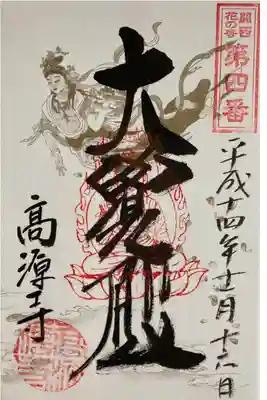 関西
花の寺
第四番
平成十四年十一月十六日
大覺殿
高源寺